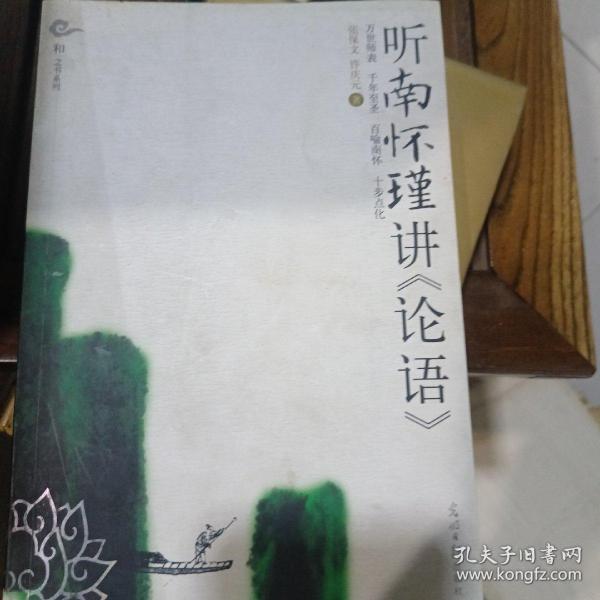 听南怀瑾讲《论语》
万世师表 千年至圣 百喻南怀 十步点化
张保文 许庆元 著
和之书系列
光明日
孔夫子旧书网
www.kongfz.com